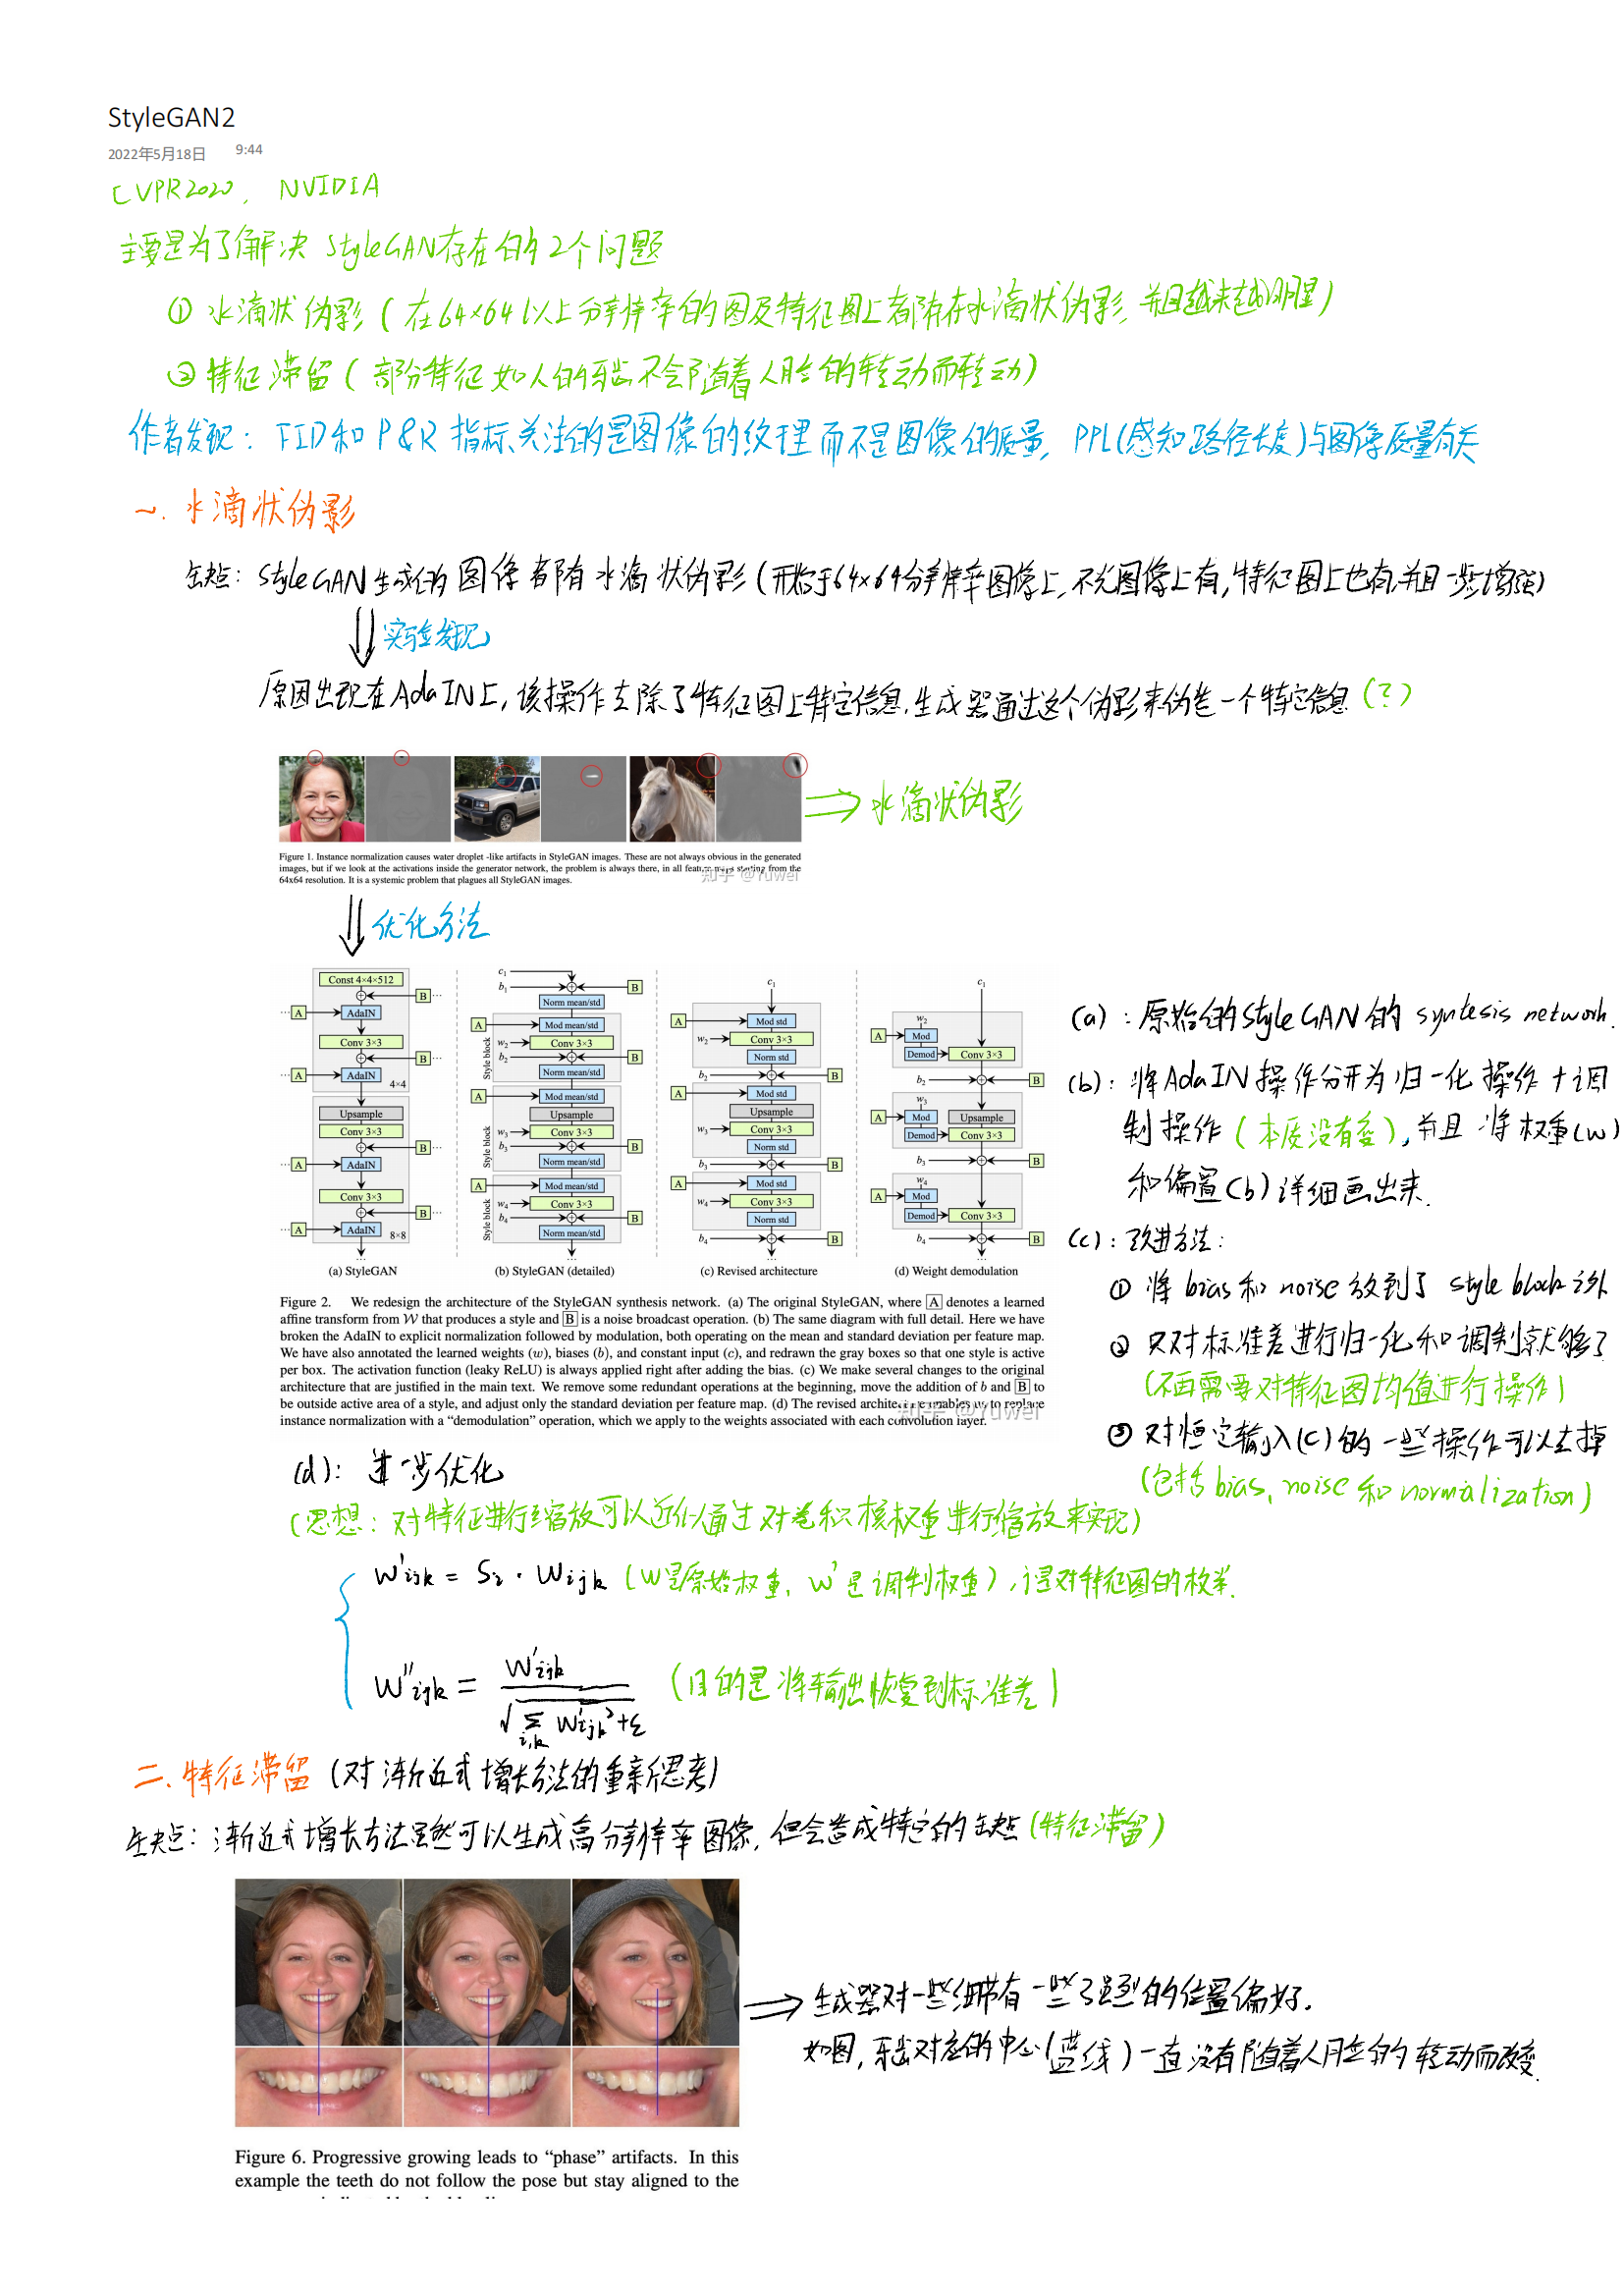 StyleGAN2
2022年5月18日 9:44
CVPR2020, NVIDIA
主要是为了解决 StyleGAN存在的2个问题
① 水滴状伪影 ( 在64×64以上分辨率的图及特征图上都有存水滴状伪影, 并且越来越明显 )
② 特征滞留 ( 部分特征如人的牙齿不会随着人脸的转动而转动 )
作者发现: FID和P&R指标关注的是图像的纹理而不是图像的质量, PPL(感知路径长度)与图像质量有关
一. 水滴状伪影
缺点: StyleGAN生成的图像都有水滴状伪影 (开始于64×64分辨率图像上, 不光图像上有, 特征图上也有, 并且一步步增强)
实验发现
原因出现在AdaIN上, 该操作去除了特征图上特定信息, 生成器通过这个伪影来伪造一个特定信息 (?)
⇒ 水滴状伪影
Figure 1. Instance normalization causes water droplet -like artifacts in StyleGAN images. These are not always obvious in the generated
images, but if we look at the activations inside the generator network, the problem is always there, in all feature maps starting from the
64x64 resolution. It is a systemic problem that plagues all StyleGAN images.
知乎 @Yuwei
优化方法
Const 4×4×512
B
A AdaIN
Conv 3×3
B
A AdaIN
4×4
Upsample
Conv 3×3
B
A AdaIN
Conv 3×3
B
A AdaIN
8×8
(a) StyleGAN
c1
b1 B
Norm mean/std
A Mod mean/std
w2 Conv 3×3
b2 B
Norm mean/std
Style block
A Mod mean/std
Upsample
w3 Conv 3×3
b3 B
Norm mean/std
Style block
A Mod mean/std
w4 Conv 3×3
b4 B
Norm mean/std
Style block
(b) StyleGAN (detailed)
c1
A Mod std
w2 Conv 3×3
Norm std
b2 B
A Mod std
Upsample
w3 Conv 3×3
Norm std
b3 B
A Mod std
w4 Conv 3×3
Norm std
b4 B
(c) Revised architecture
c1
w2
A Mod
Demod Conv 3×3
b2 B
w3
A Mod Upsample
Demod Conv 3×3
b3 B
w4
A Mod
Demod Conv 3×3
b4 B
(d) Weight demodulation
Figure 2. We redesign the architecture of the StyleGAN synthesis network. (a) The original StyleGAN, where A denotes a learned
affine transform from W that produces a style and B is a noise broadcast operation. (b) The same diagram with full detail. Here we have
broken the AdaIN to explicit normalization followed by modulation, both operating on the mean and standard deviation per feature map.
We have also annotated the learned weights (w), biases (b), and constant input (c), and redrawn the gray boxes so that one style is active
per box. The activation function (leaky ReLU) is always applied right after adding the bias. (c) We make several changes to the original
architecture that are justified in the main text. We remove some redundant operations at the beginning, move the addition of b and B to
be outside active area of a style, and adjust only the standard deviation per feature map. (d) The revised architecture enables us to replace
instance normalization with a “demodulation” operation, which we apply to the weights associated with each convolution layer.
知乎 @Yuwei
(a) : 原始的StyleGAN的 syntesis network.
(b) : 将AdaIN操作分开为归一化操作+调
制操作 (本质没有变), 并且将权重(w)
和偏置(b)详细画出来.
(c) : 改进方法:
① 将bias和noise放到了style block之外
② 只对标准差进行归一化和调制就够了
(不再需要对特征图均值进行操作)
③ 对恒定输入(c)的一些操作可以去掉
(包括bias, noise和normalization)
(d): 进一步优化
(思想: 对特征进行缩放可以近似通过对卷积核权重进行缩放来实现)
w'ijk = Si · wijk (w是原始权重, w'是调制权重), i是对特征图的枚举.
w''ijk = w'ijk / √(Σi,k w'ijk² + ε) (目的是将输出恢复到标准差)
二. 特征滞留 (对渐近式增长方法的重新思考)
缺点: 渐近式增长方法虽然可以生成高分辨率图像, 但会造成特定的缺点 (特征滞留)
⇒ 生成器对一些细节有一些强烈的位置偏好.
如图, 牙齿对应的中心(蓝线)一直没有随着人脸的转动而改变.
Figure 6. Progressive growing leads to “phase” artifacts. In this
example the teeth do not follow the pose but stay aligned to the